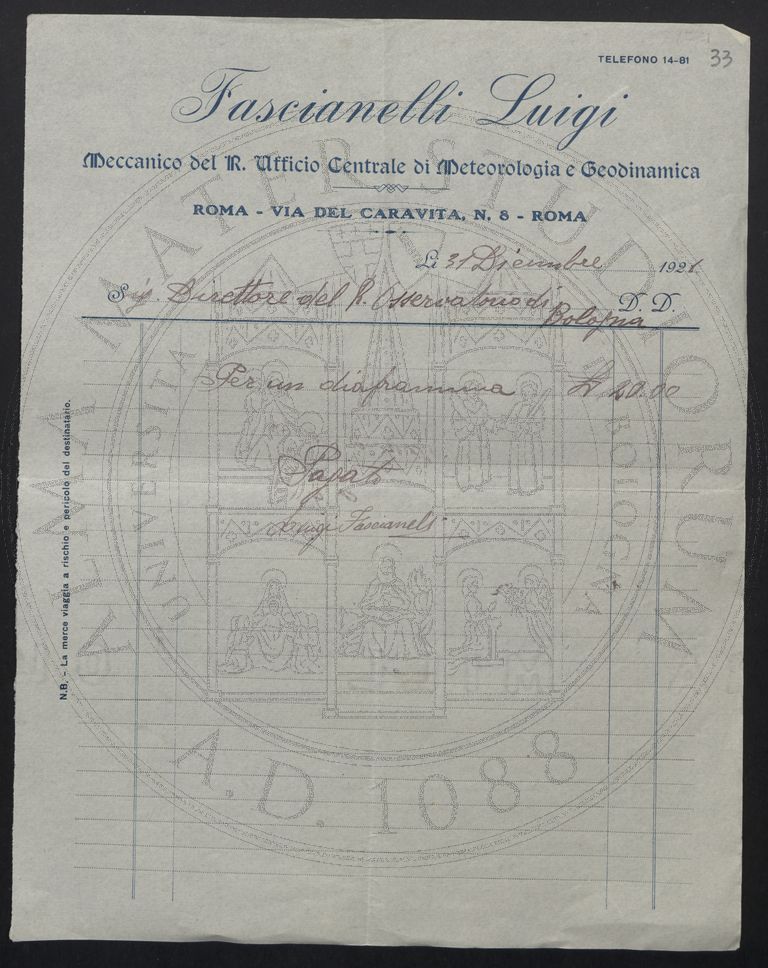 TELEFONO 14-81 33
Fascianelli Luigi
Meccanico del R. Ufficio Centrale di Meteorologia e Geodinamica
ROMA - VIA DEL CARAVITA, N. 8 - ROMA
Li 31 Dicembre 192
Sig. Direttore del R. Osservatorio di D. D.
Bologna
Per un diaframma L. 20.00
Pagato
Luigi Fascianelli
N.B. - La merce viaggia a rischio e pericolo del destinatario.
ALMA MATER STUDIORUM
UNIVERSITÀ DI BOLOGNA
A.D. 1088